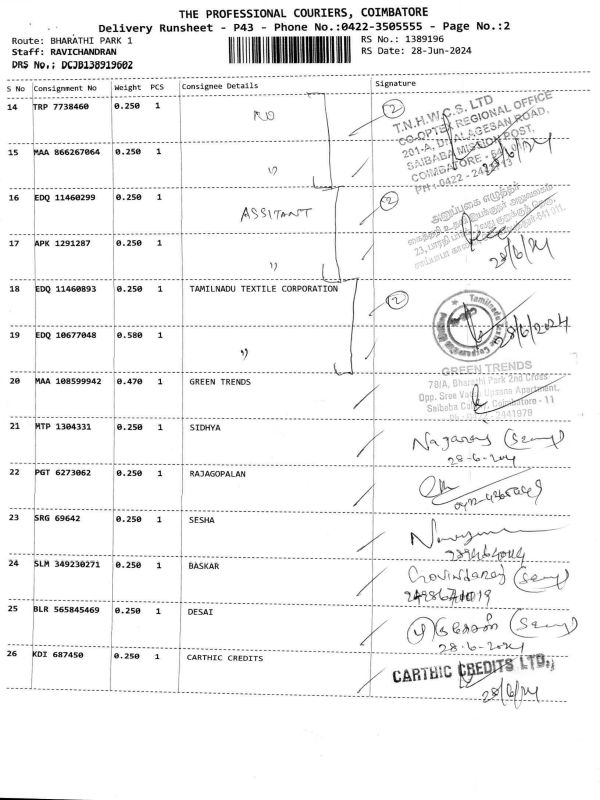 THE PROFESSIONAL COURIERS, COIMBATORE
Delivery Runsheet - P43 - Phone No.:0422-3505555 - Page No.:2
Route: BHARATHI PARK 1
RS No.: 1389196
Staff: RAVICHANDRAN
RS Date: 28-Jun-2024
DRS No.: DCJB138919602
S No Consignment No Weight PCS Consignee Details Signature
14 TRP 7738460 0.250 1 RO
2
T.N.H.W.C.S. LTD
CO-OPTEX REGIONAL OFFICE
201-A, ALAGESAN ROAD,
SAIBABA MISSION POST,
COIMBATORE -
PH : 0422 -
28/6/24
15 MAA 866267064 0.250 1 "
16 EDQ 11460299 0.250 1 ASSITANT
2
28/6/24
17 APK 1291287 0.250 1 "
18 EDQ 11460893 0.250 1 TAMILNADU TEXTILE CORPORATION
2
28/6/2024
19 EDQ 10677048 0.580 1 "
GREEN TRENDS
20 MAA 108599942 0.470 1 GREEN TRENDS
78/A, Bharathi Park 2nd Cross
Opp. Sree Upsana Apartment,
Saibaba Colony, Coimbatore - 11
2441979
21 MTP 1304331 0.250 1 SIDHYA
Nagaraj
28-6-2024
22 PGT 6273062 0.250 1 RAJAGOPALAN
23 SRG 69642 0.250 1 SESHA
24 SLM 349230271 0.250 1 BASKAR
Govindaraj
25 BLR 565845469 0.250 1 DESAI
28-6-2024
26 KDI 687450 0.250 1 CARTHIC CREDITS
CARTHIC CREDITS LTD.,
28/6/24